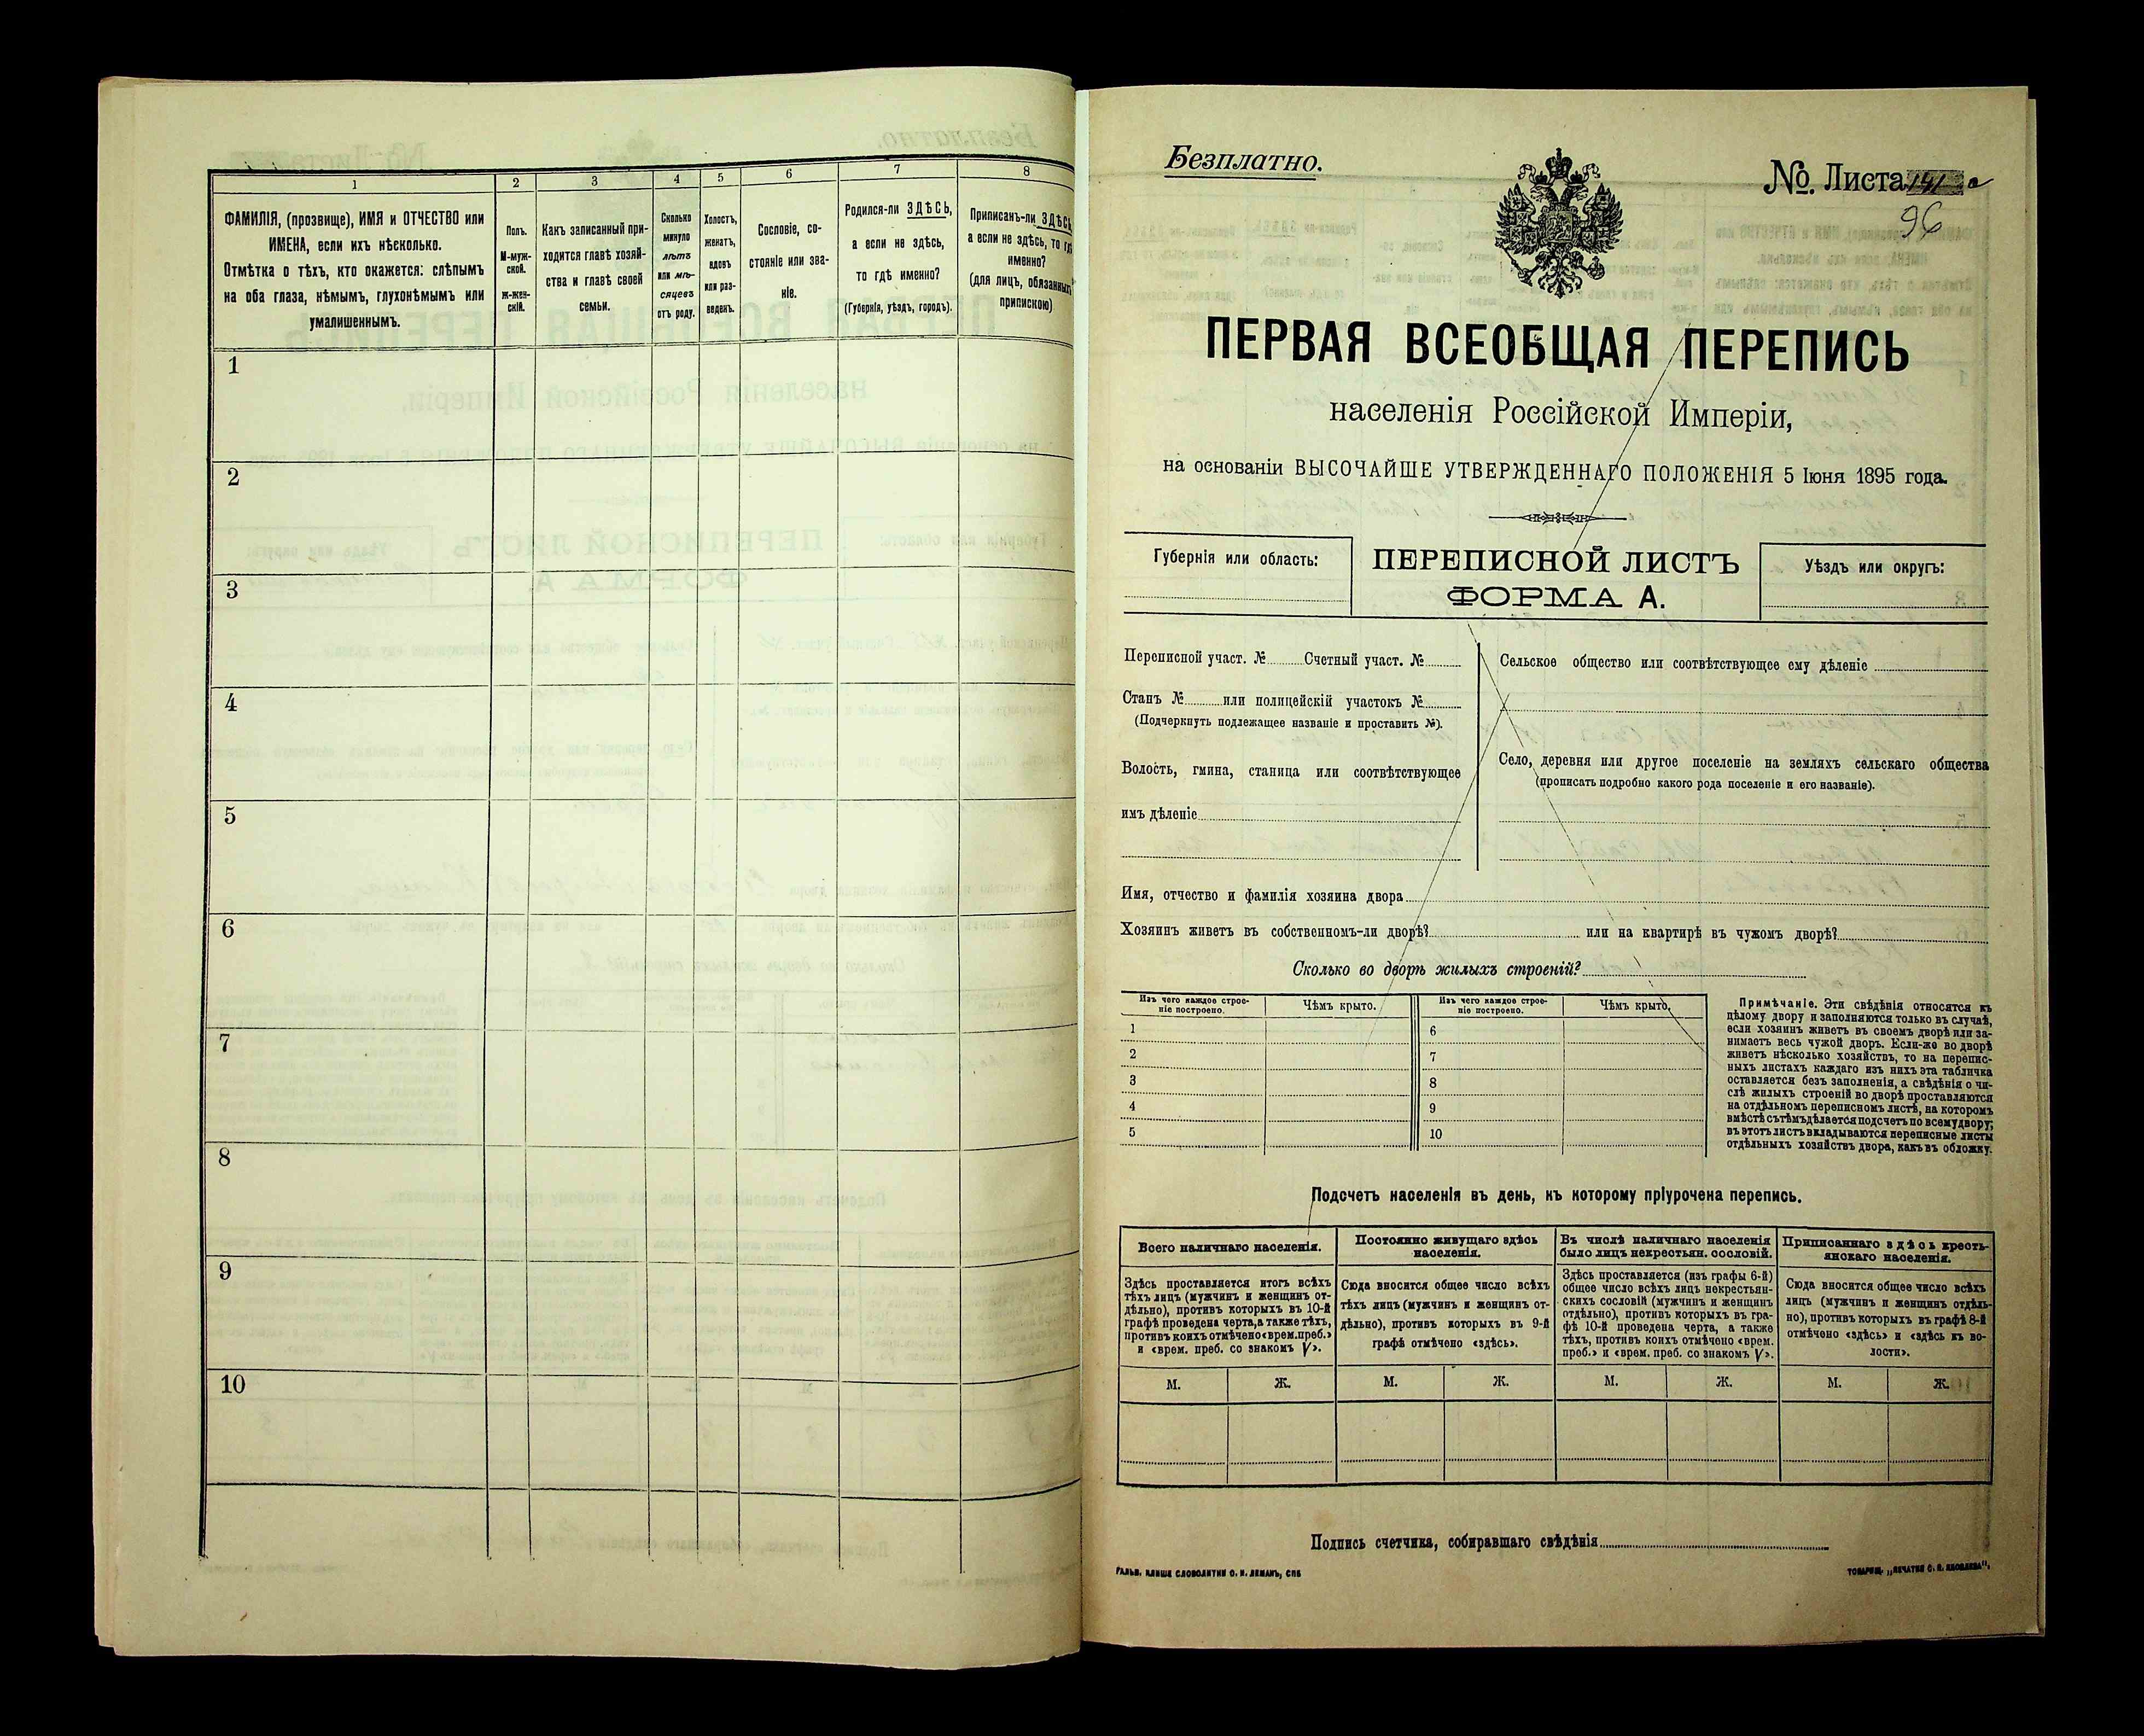 1
2
3
4
5
6
7
8
ФАМИЛІЯ, (прозвище), ИМЯ и ОТЧЕСТВО или
ИМЕНА, если ихъ нѣсколько.
Отмѣтка о тѣхъ, кто окажется: слѣпымъ
на оба глаза, нѣмымъ, глухонѣмымъ или
умалишеннымъ.
Полъ.
М-муж-
ской.
ж-жен-
скій.
Какъ записанный при-
ходится главѣ хозяй-
ства и главѣ своей
семьи.
Сколько
минуло
лѣтъ
или мѣ-
сяцевъ
отъ роду.
Холостъ,
женатъ,
вдовъ
или раз-
веденъ.
Сословіе, со-
стояніе или зва-
ніе.
Родился-ли ЗДѢСЬ,
а если не здѣсь,
то гдѣ именно?
(Губернія, уѣздъ, городъ).
Приписанъ-ли ЗДѢСЬ,
а если не здѣсь, то гдѣ
именно?
(для лицъ, обязанныхъ
припискою)
1
2
3
4
5
6
7
8
9
10
Безплатно.
№. Листа 141 а
96
ПЕРВАЯ ВСЕОБЩАЯ ПЕРЕПИСЬ
населенія Россійской Имперіи,
на основаніи ВЫСОЧАЙШЕ УТВЕРЖДЕННАГО ПОЛОЖЕНІЯ 5 Іюня 1895 года.
Губернія или область:
ПЕРЕПИСНОЙ ЛИСТЪ
ФОРМА А.
Уѣздъ или округъ:
Переписной участ. № Счетный участ. №
Станъ № или полицейскій участокъ №
(Подчеркнуть подлежащее названіе и проставить №).
Волость, гмина, станица или соотвѣтствующее
имъ дѣленіе
Сельское общество или соотвѣтствующее ему дѣленіе
Село, деревня или другое поселеніе на земляхъ сельскаго общества
(прописать подробно какого рода поселеніе и его названіе).
Имя, отчество и фамилія хозяина двора
Хозяинъ живетъ въ собственномъ-ли дворѣ? или на квартирѣ въ чужомъ дворѣ?
Сколько во дворѣ жилыхъ строеній?
Изъ чего каждое строе-
ніе построено.
Чѣмъ крыто.
Изъ чего каждое строе-
ніе построено.
Чѣмъ крыто.
1
2
3
4
5
6
7
8
9
10
Примѣчаніе. Эти свѣдѣнія относятся къ
цѣлому двору и заполняются только въ случаѣ,
если хозяинъ живетъ въ своемъ дворѣ или за-
нимаетъ весь чужой дворъ. Если-же во дворѣ
живетъ нѣсколько хозяйствъ, то на перепис-
ныхъ листахъ каждаго изъ нихъ эта табличка
оставляется безъ заполненія, а свѣдѣнія о чи-
слѣ жилыхъ строеній во дворѣ проставляются
на отдѣльномъ переписномъ листѣ, на которомъ
вмѣстѣ съ тѣмъ дѣлается подсчетъ по всему двору;
въ этотъ листъ вкладываются переписные листы
отдѣльныхъ хозяйствъ двора, какъ въ обложку.
Подсчетъ населенія въ день, къ которому пріурочена перепись.
Всего наличнаго населенія.
Здѣсь проставляется итогъ всѣхъ
тѣхъ лицъ (мужчинъ и женщинъ от-
дѣльно), противъ которыхъ въ 10-й
графѣ проведена черта, а также тѣхъ,
противъ коихъ отмѣчено «врем. преб.»
и «врем. преб. со знакомъ V».
Постоянно живущаго здѣсь
населенія.
Сюда вносится общее число всѣхъ
тѣхъ лицъ (мужчинъ и женщинъ от-
дѣльно), противъ которыхъ въ 9-й
графѣ отмѣчено «здѣсь».
Въ числѣ наличнаго населенія
было лицъ некрестьян. сословій.
Здѣсь проставляется (изъ графы 6-й)
общее число всѣхъ лицъ некрестьян-
скихъ сословій (мужчинъ и женщинъ
отдѣльно), противъ которыхъ въ гра-
фѣ 10-й проведена черта, а также
тѣхъ, противъ коихъ отмѣчено «врем.
преб.» и «врем. преб. со знакомъ V».
Приписаннаго здѣсь кресть-
янскаго населенія.
Сюда вносится общее число всѣхъ
лицъ (мужчинъ и женщинъ отдѣль-
но), противъ которыхъ въ графѣ 8-й
отмѣчено «здѣсь» и «здѣсь въ во-
лости».
М.
Ж.
М.
Ж.
М.
Ж.
М.
Ж.
Подпись счетчика, собиравшаго свѣдѣнія
ГАЛЬВ. КЛИШЕ СЛОВОЛИТНИ О. И. ЛЕМАНЪ, СПБ
ТОВАРИЩ. „ПЕЧАТНЯ С. П. ЯКОВЛЕВА".